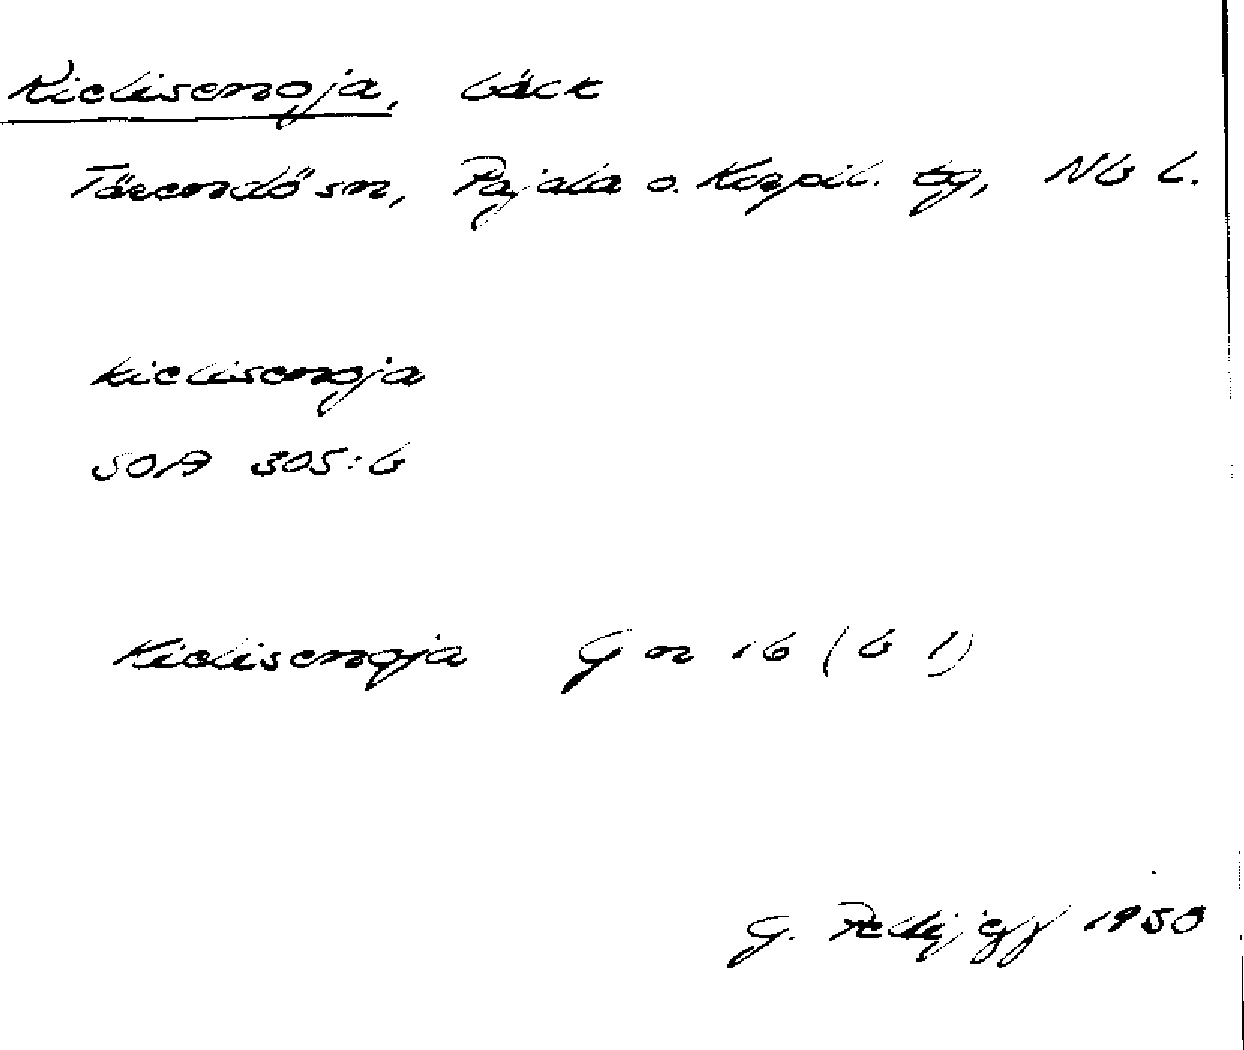 Kielisenoja, bäck
Tärendö sn, Pajala o. Korpil. tg, Nb l.
kielisenoja
SOA 305:6
Kielisenoja G n 16 (b 1)
G. 1950